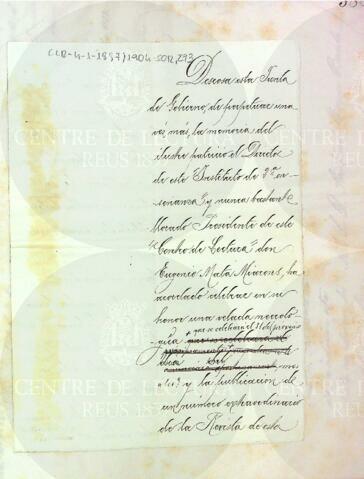 CLR-4-1-1897/1904-SOR,293
Deseosa esta Junta
de Gobierno, de perpetuar una
vez más, la memoria del
ilustre patricio el Director
de este Instituto de 2ª en-
señanza, y nunca bastante
llorado Presidente de este
"Centro de Lectura", don
Eugenio Mata Miarons, ha
acordado celebrar en su
honor una velada necroló-
que se celebrará el 11 del próximo
gica
y la publicación de
un número extraordinario
de la Revista de esta
CENTRE DE LECTURA
REUS 1859